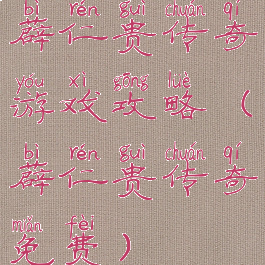 bì rén guì chuán qí
薜仁贵传奇
yóu xì gōng lüè
游戏攻略（
bì rén guì chuán qí
薜仁贵传奇
miǎn fèi
免费）